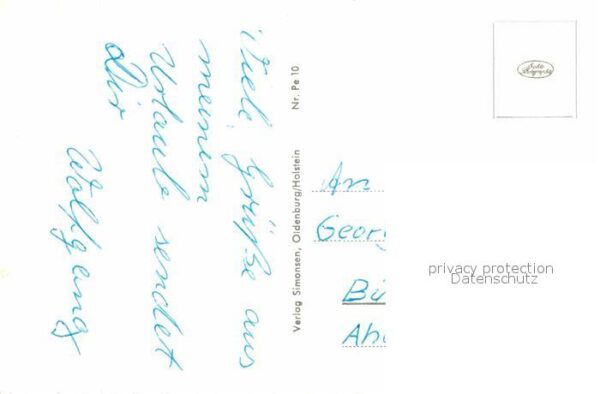 Viele Grüße aus
meinem
Urlaub sendet
Dir
Wolfgang
Verlag Simonsen, Oldenburg/Holstein Nr. Pe 10
An
Georg
Bü
Ah
privacy protection
Datenschutz